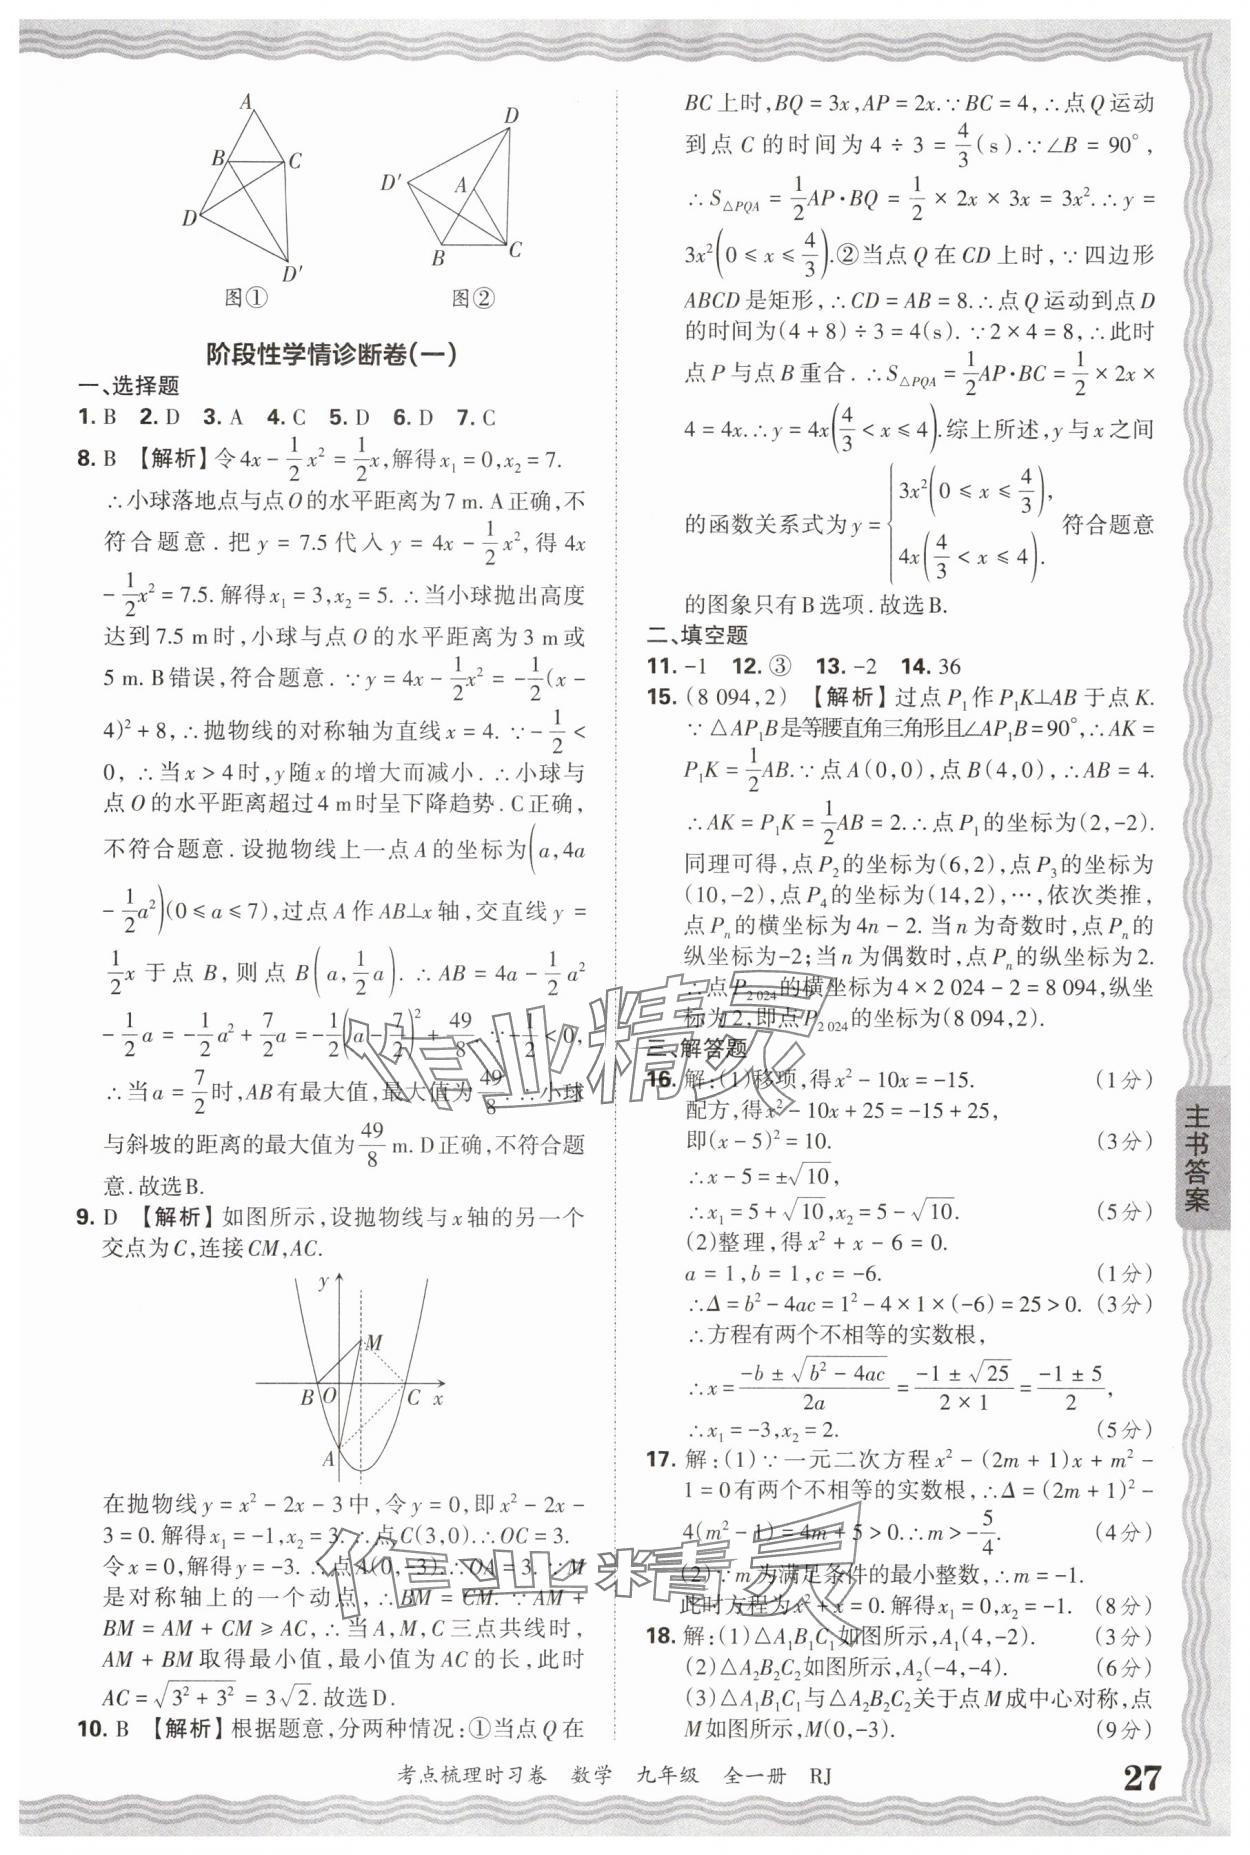 A
B
C
D
D′
图①
D
D′
A
B
C
图②
阶段性学情诊断卷(一)
一、选择题
1. B 2. D 3. A 4. C 5. D 6. D 7. C
8. B 【解析】令4x－1/2x²＝1/2x,解得x₁＝0,x₂＝7.
∴小球落地点与点O的水平距离为7 m. A正确,不
符合题意.把y＝7.5代入y＝4x－1/2x²,得4x
－1/2x²＝7.5.解得x₁＝3,x₂＝5.∴当小球抛出高度
达到7.5 m时,小球与点O的水平距离为3 m或
5 m. B错误,符合题意.∵y＝4x－1/2x²＝－1/2(x－
4)²＋8,∴抛物线的对称轴为直线x＝4.∵－1/2＜
0,∴当x＞4时,y随x的增大而减小.∴小球与
点O的水平距离超过4 m时呈下降趋势. C正确,
不符合题意.设抛物线上一点A的坐标为(a,4a
－1/2a²)(0≤a≤7),过点A作AB⊥x轴,交直线y＝
1/2x于点B,则点B(a,1/2a).∴AB＝4a－1/2a²
－1/2a＝－1/2a²＋7/2a＝－1/2(a－7/2)²＋49/8.∵－1/2＜0,
∴当a＝7/2时,AB有最大值,最大值为49/8.∴小球
与斜坡的距离的最大值为49/8 m. D正确,不符合题
意.故选B.
9. D 【解析】如图所示,设抛物线与x轴的另一个
交点为C,连接CM,AC.
y
M
B O C x
A
在抛物线y＝x²－2x－3中,令y＝0,即x²－2x－
3＝0.解得x₁＝－1,x₂＝3.∴点C(3,0).∴OC＝3.
令x＝0,解得y＝－3.∴点A(0,－3).∴OA＝3.∵M
是对称轴上的一个动点,∴BM＝CM.∵AM＋
BM＝AM＋CM≥AC,∴当A,M,C三点共线时,
AM＋BM取得最小值,最小值为AC的长,此时
AC＝√(3²＋3²)＝3√2.故选D.
10. B 【解析】根据题意,分两种情况:①当点Q在
BC上时,BQ＝3x,AP＝2x.∵BC＝4,∴点Q运动
到点C的时间为4÷3＝4/3(s).∵∠B＝90°,
∴S△PQA＝1/2AP·BQ＝1/2×2x×3x＝3x².∴y＝
3x²(0≤x≤4/3).②当点Q在CD上时,∵四边形
ABCD是矩形,∴CD＝AB＝8.∴点Q运动到点D
的时间为(4＋8)÷3＝4(s).∵2×4＝8,∴此时
点P与点B重合.∴S△PQA＝1/2AP·BC＝1/2×2x×
4＝4x.∴y＝4x(4/3＜x≤4).综上所述,y与x之间
的函数关系式为y＝{3x²(0≤x≤4/3), 4x(4/3＜x≤4). 符合题意
的图象只有B选项.故选B.
二、填空题
11. －1 12. ③ 13. －2 14. 36
15. (8 094,2) 【解析】过点P₁作P₁K⊥AB于点K.
∵△AP₁B是等腰直角三角形且∠AP₁B＝90°,∴AK＝
P₁K＝1/2AB.∵点A(0,0),点B(4,0),∴AB＝4.
∴AK＝P₁K＝1/2AB＝2.∴点P₁的坐标为(2,－2).
同理可得,点P₂的坐标为(6,2),点P₃的坐标为
(10,－2),点P₄的坐标为(14,2),…,依次类推,
点Pₙ的横坐标为4n－2.当n为奇数时,点Pₙ的
纵坐标为－2;当n为偶数时,点Pₙ的纵坐标为2.
∴点P₂ ₀₂₄的横坐标为4×2 024－2＝8 094,纵坐
标为2,即点P₂ ₀₂₄的坐标为(8 094,2).
三、解答题
16. 解:(1)移项,得x²－10x＝－15. (1分)
配方,得x²－10x＋25＝－15＋25,
即(x－5)²＝10. (3分)
∴x－5＝±√10,
∴x₁＝5＋√10,x₂＝5－√10. (5分)
(2)整理,得x²＋x－6＝0.
a＝1,b＝1,c＝－6. (1分)
∴Δ＝b²－4ac＝1²－4×1×(－6)＝25＞0. (3分)
∴方程有两个不相等的实数根,
∴x＝(－b±√(b²－4ac))/2a＝(－1±√25)/(2×1)＝(－1±5)/2,
∴x₁＝－3,x₂＝2. (5分)
17. 解:(1)∵一元二次方程x²－(2m＋1)x＋m²－
1＝0有两个不相等的实数根,∴Δ＝(2m＋1)²－
4(m²－1)＝4m＋5＞0.∴m＞－5/4. (4分)
(2)∵m为满足条件的最小整数,∴m＝－1.
此时方程为x²＋x＝0.解得x₁＝0,x₂＝－1. (8分)
18. 解:(1)△A₁B₁C₁如图所示,A₁(4,－2). (3分)
(2)△A₂B₂C₂如图所示,A₂(－4,－4). (6分)
(3)△A₁B₁C₁与△A₂B₂C₂关于点M成中心对称,点
M如图所示,M(0,－3). (9分)
主书答案
作业精灵
作业精灵
考点梳理时习卷 数学 九年级 全一册 RJ
27